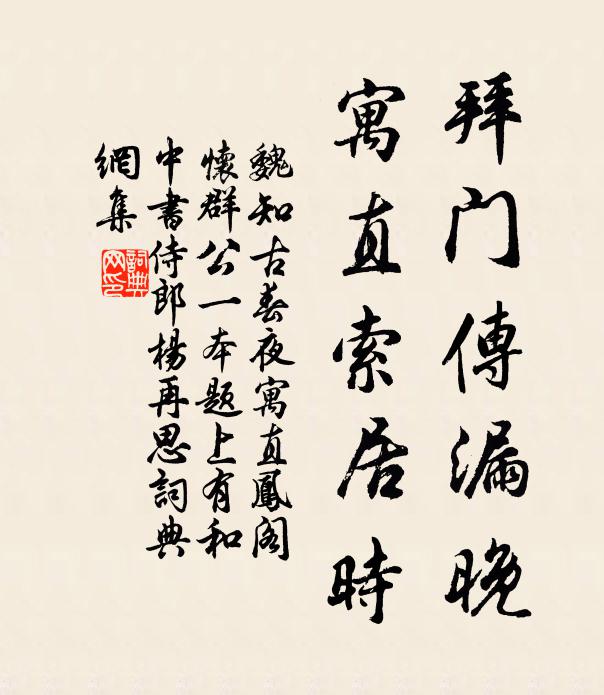 拜門傳漏晚
寓直索居時
魏知古春夜寓直鳳閣
懷群公一本題上有和
中書侍郎楊再思詞典
網集
詞典網印